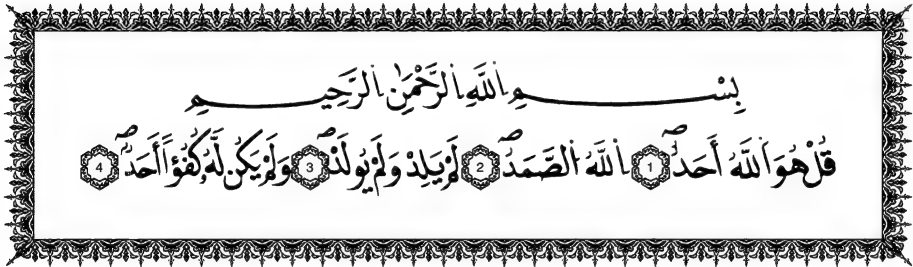 بِسْمِ اللَّهِ الرَّحْمَٰنِ الرَّحِيمِ
قُلْ هُوَ اللَّهُ أَحَدٌ 1 اللَّهُ الصَّمَدُ 2 لَمْ يَلِدْ وَلَمْ يُولَدْ 3 وَلَمْ يَكُن لَّهُ كُفُؤًا أَحَدٌ 4